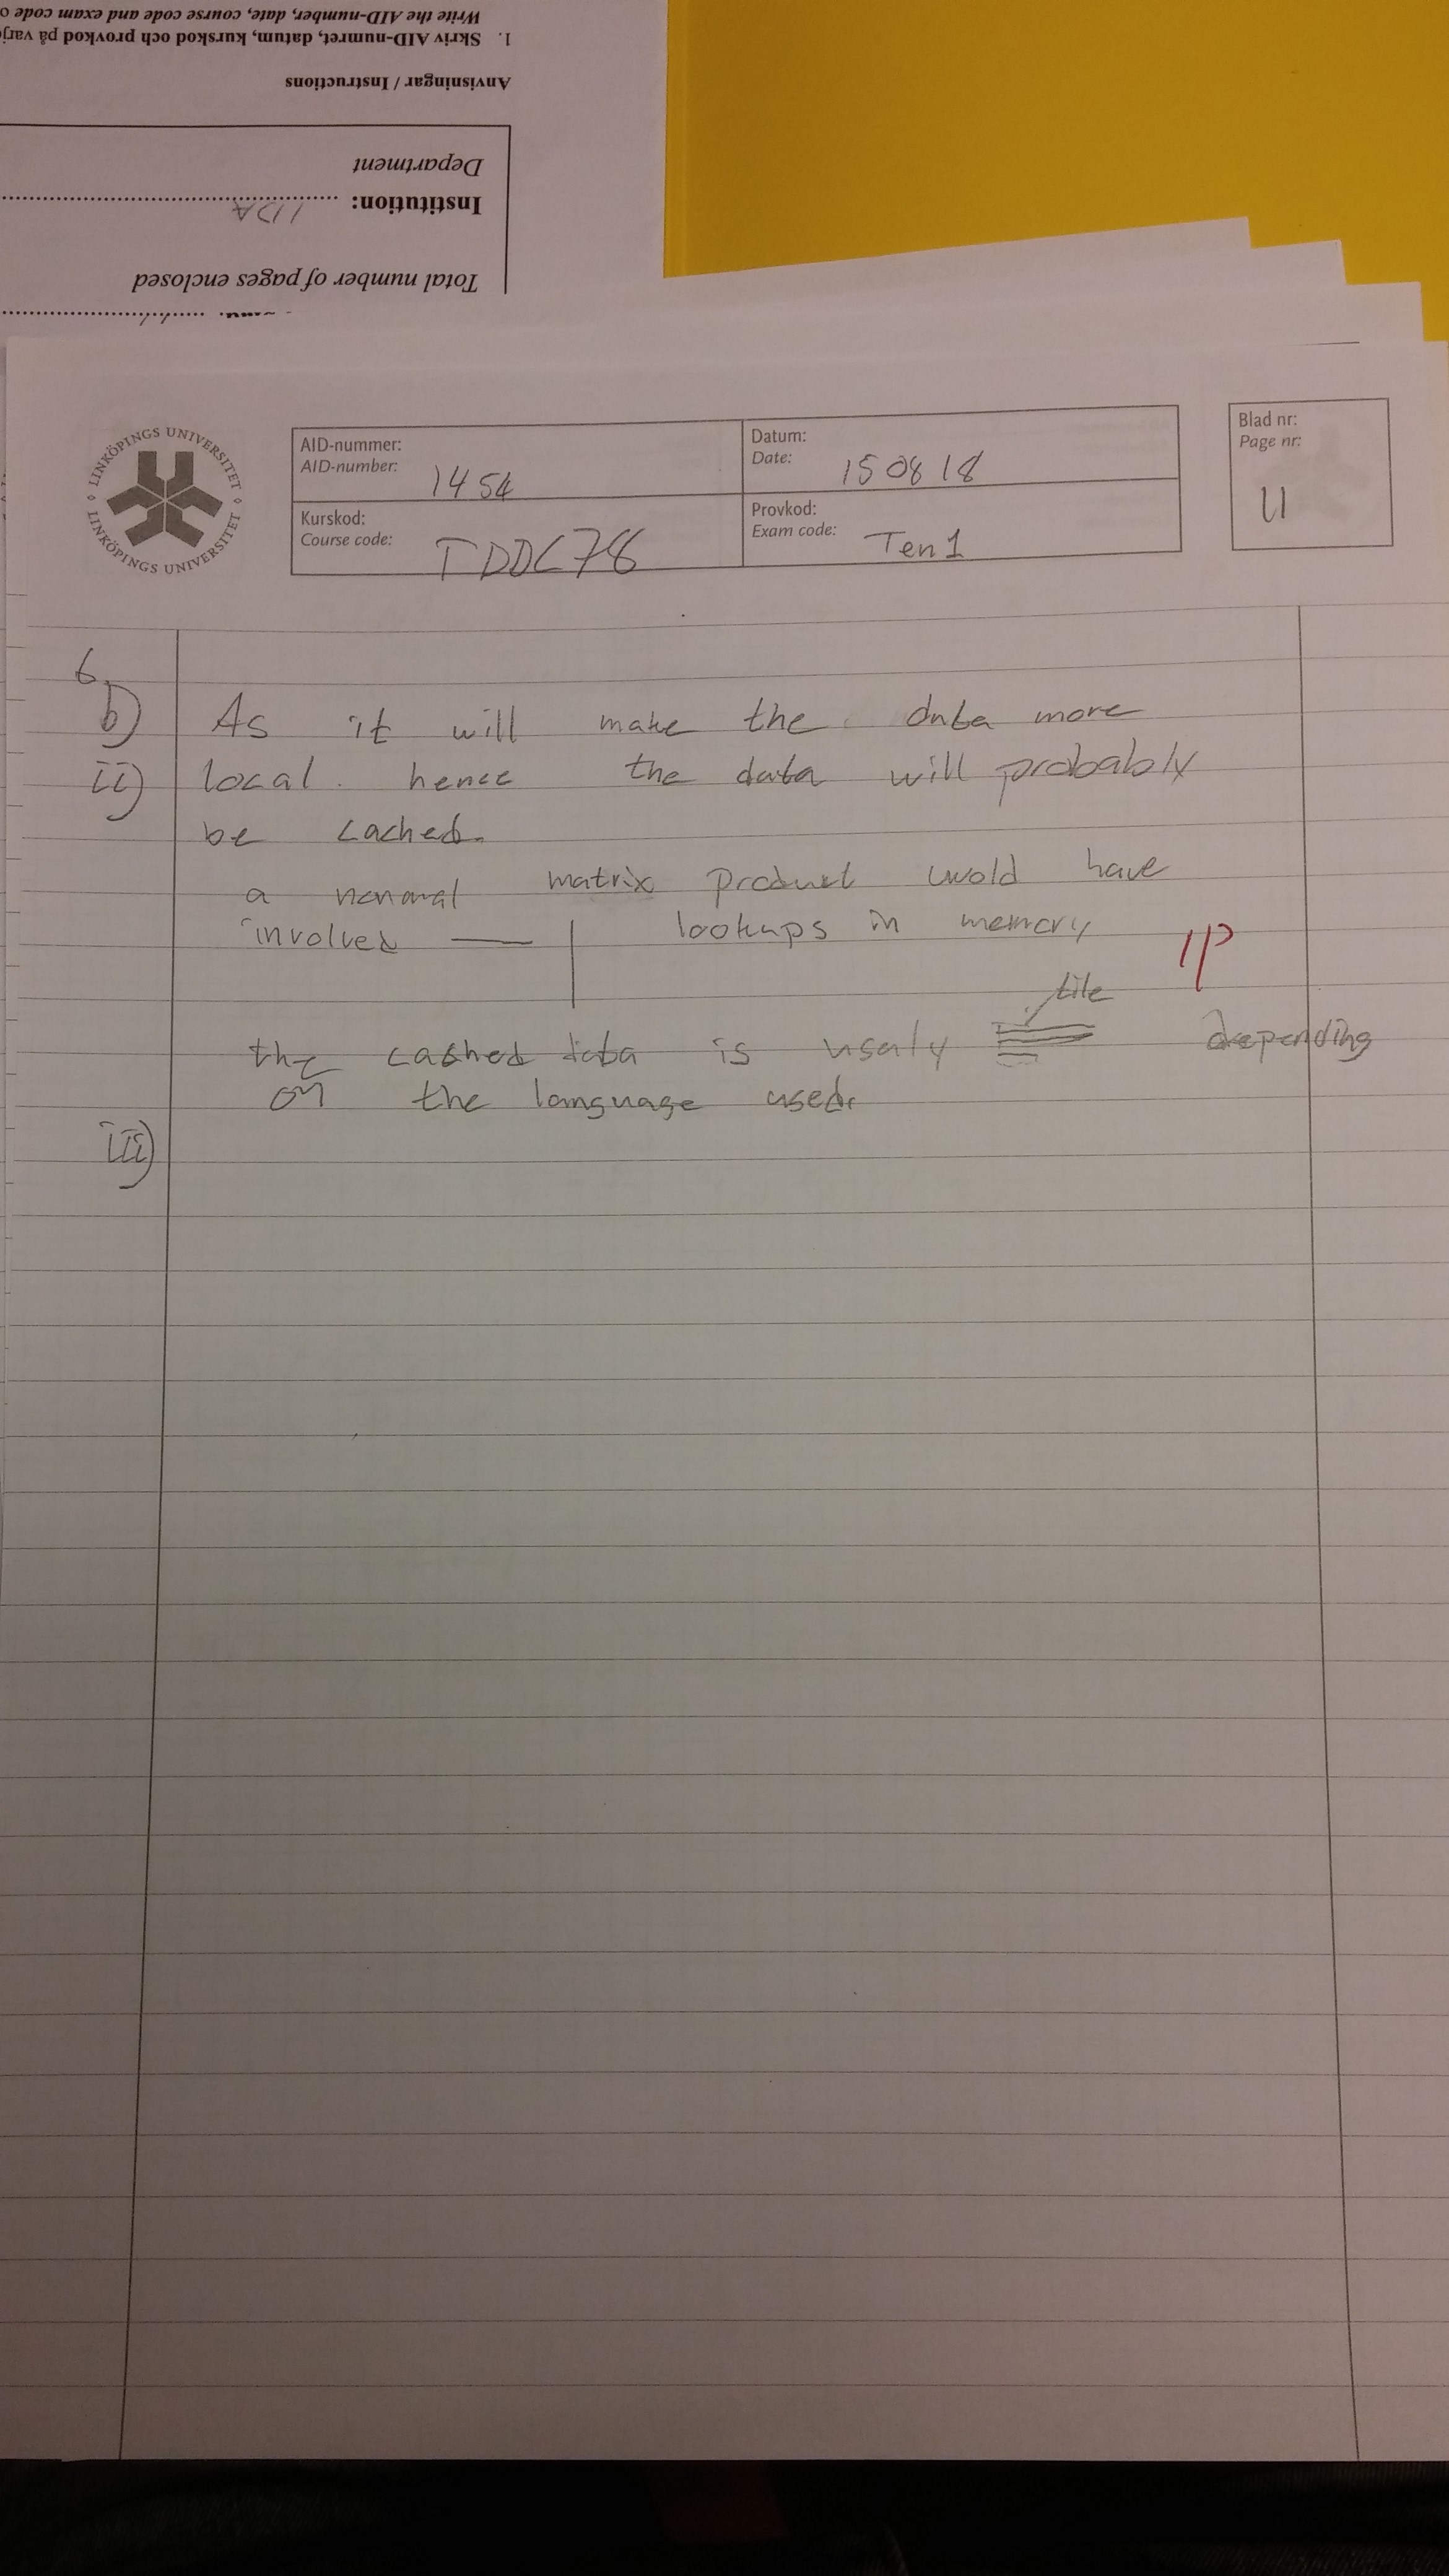 Write the AID-number, date, course code and exam code o
1. Skriv AID-numret, datum, kurskod och provkod på varje
Anvisningar / Instructions
Department
Institution: IDA
Total number of pages enclosed
LINKÖPINGS UNIVERSITET
LINKÖPINGS UNIVERSITET
AID-nummer:
AID-number: 1454
Datum:
Date: 150818
Kurskod:
Course code: TDDC78
Provkod:
Exam code: Ten1
Blad nr:
Page nr:
11
6
b) As it will make the data more
ii) local. hence the data will probably
be cached.
a noromal matrix product wold have
involved lookups in memory
1p
tile
the cashed data is usaly depending
on the language used.
iii)